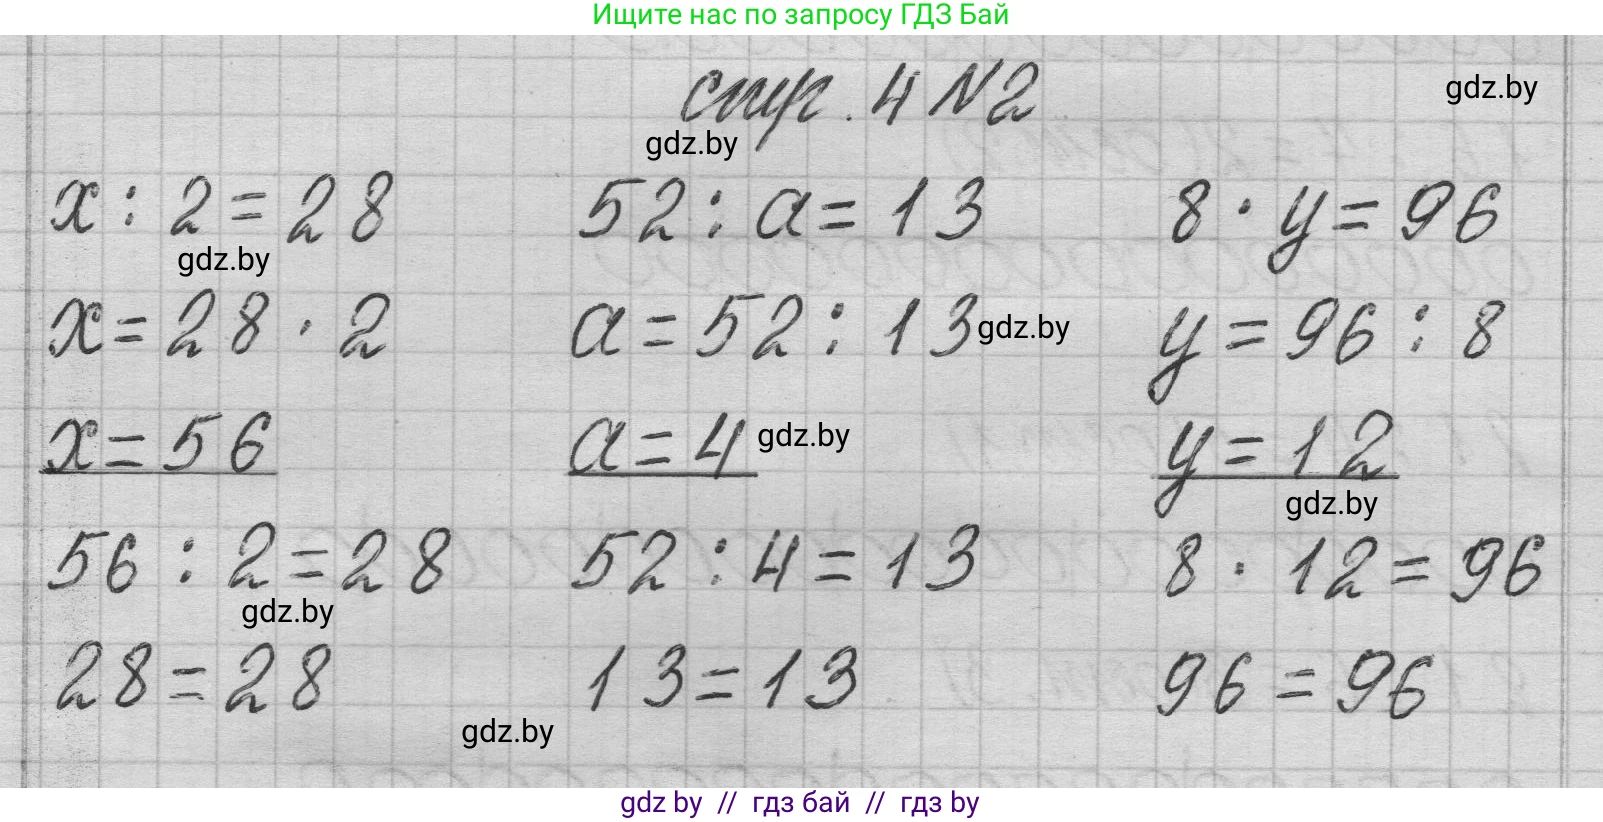 Ищите нас по запросу ГДЗ Бай
стр. 4 №2
gdz.by
gdz.by
x : 2 = 28 52 : a = 13 8 · y = 96
gdz.by
x = 28 · 2 a = 52 : 13 y = 96 : 8
gdz.by
x = 56 a = 4 y = 12
gdz.by
gdz.by
56 : 2 = 28 52 : 4 = 13 8 · 12 = 96
gdz.by
28 = 28 13 = 13 96 = 96
gdz.by
gdz by // гдз бай // гдз by